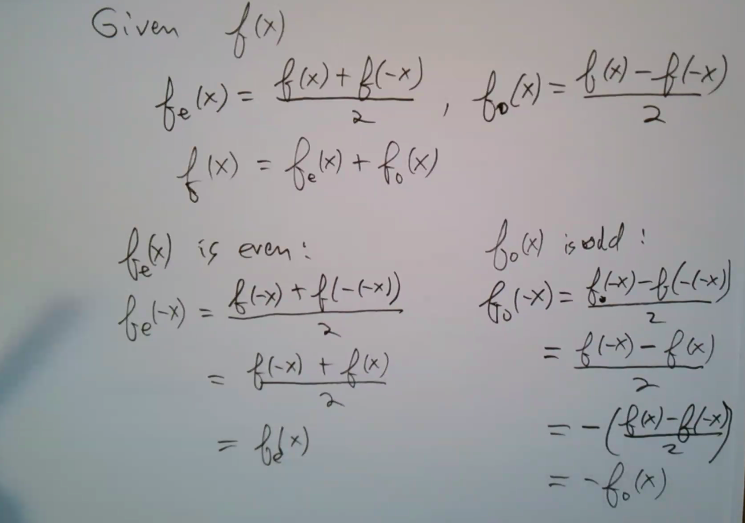 Given f(x)
f_e(x) = (f(x) + f(-x))/2 , f_o(x) = (f(x) - f(-x))/2
f(x) = f_e(x) + f_o(x)
f_e(x) is even:
f_e(-x) = (f(-x) + f(-(-x)))/2
= (f(-x) + f(x))/2
= f_e(x)
f_o(x) is odd:
f_o(-x) = (f(-x) - f(-(-x)))/2
= (f(-x) - f(x))/2
= -((f(x) - f(-x))/2)
= -f_o(x)